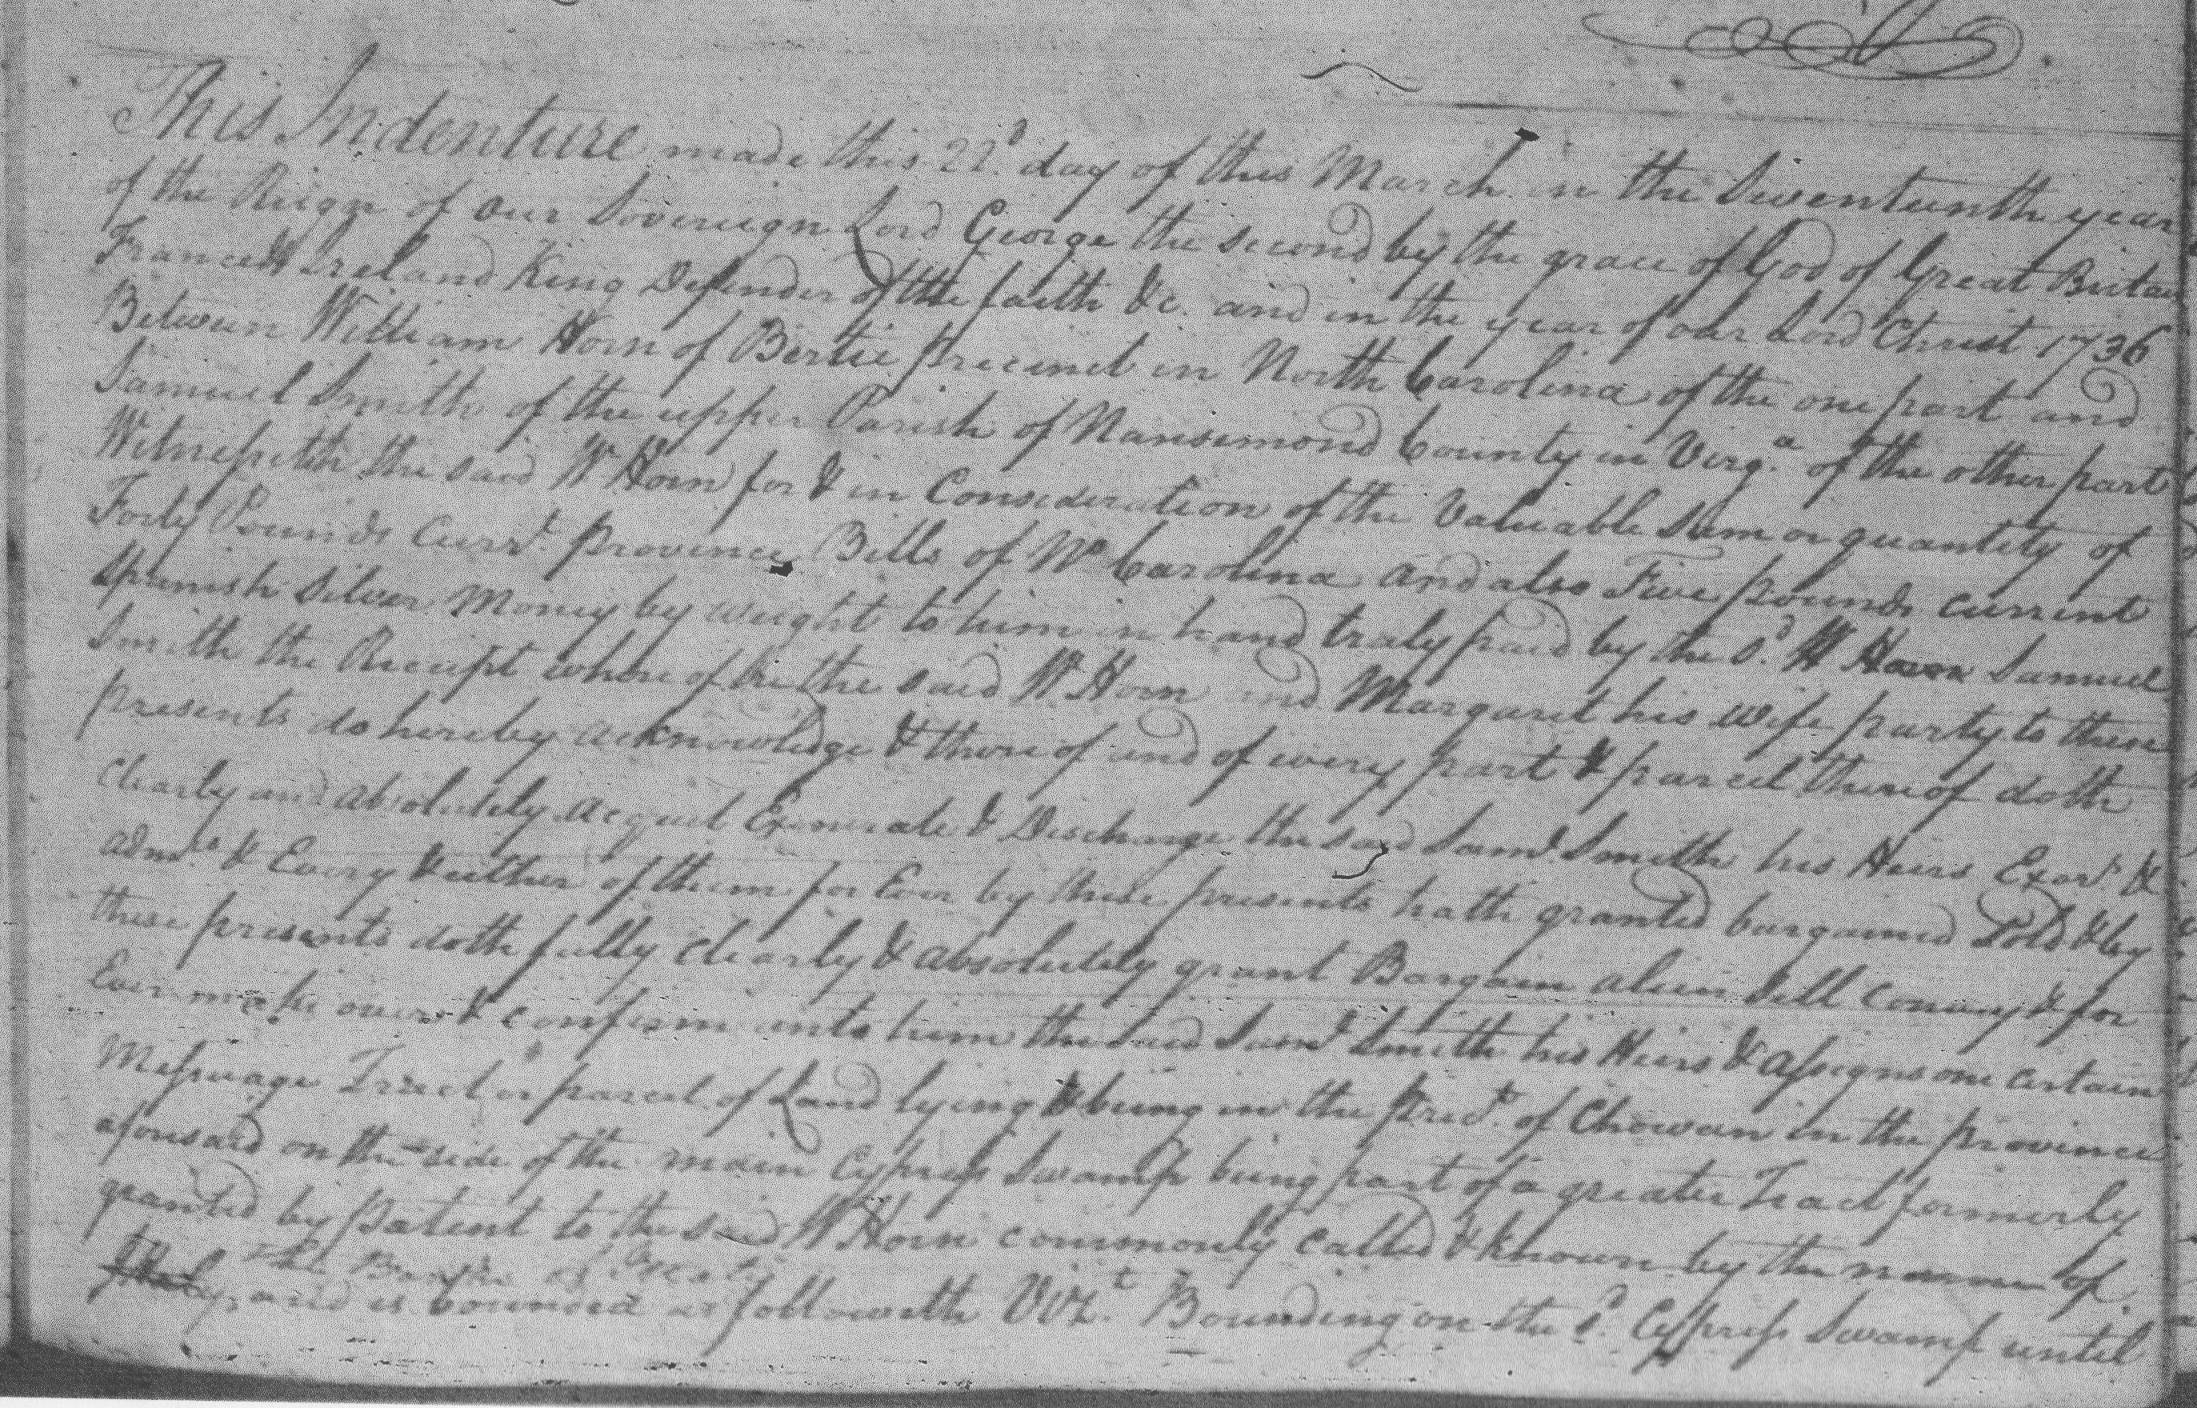 This Indenture made this 22d. day of this March in the Seventeenth year
of the Reign of our Sovereign Lord George the second by the grace of God of Great Britain
France & Ireland King Defender of the faith &c. and in the year of our Lord Christ 1736
Between William Horn of Bertie precinct in North Carolina of the one part and
Samuel Smith of the upper Parish of Nansemond County in Virga. of the other part
Witnesseth the said W Horn for & in Consideration of the Valuable Sum or quantity of
Forty Pounds Currt. province Bills of No Carolina and also Five pounds current
Spanish Silver Money by weight to him in hand truly paid by the sd. W Horn Samuel
Smith the Receipt where of he the said W. Horn and Margaret his wife party to these
presents do hereby acknowledge & there of and of every part & parcel thereof doth
clearly and absolutely acquit Exonerate & Discharge the said Saml. Smith his Heirs Exors. &
adms. & Every & either of them for Ever by these presents hath granted bargained Sold & by
these presents doth fully clearly & absolutely grant Bargain alien Sell Convey & for
Ever make over & confirm unto him the said Saml Smith his Heirs & assigns one certain
Messuage Tract or parcel of Land lying & being in the Prect. of Chowan in the province
aforesaid on the side of the main Cypress Swamp being part of a greater Tract formerly
granted by patent to the said W Horn commonly called & known by the name of
The of
and is bounded as followeth Vizt. Bounding on the sd. Cypress Swamp until